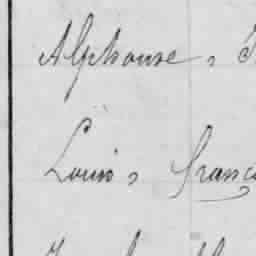 Alphonse,
Louis, franc